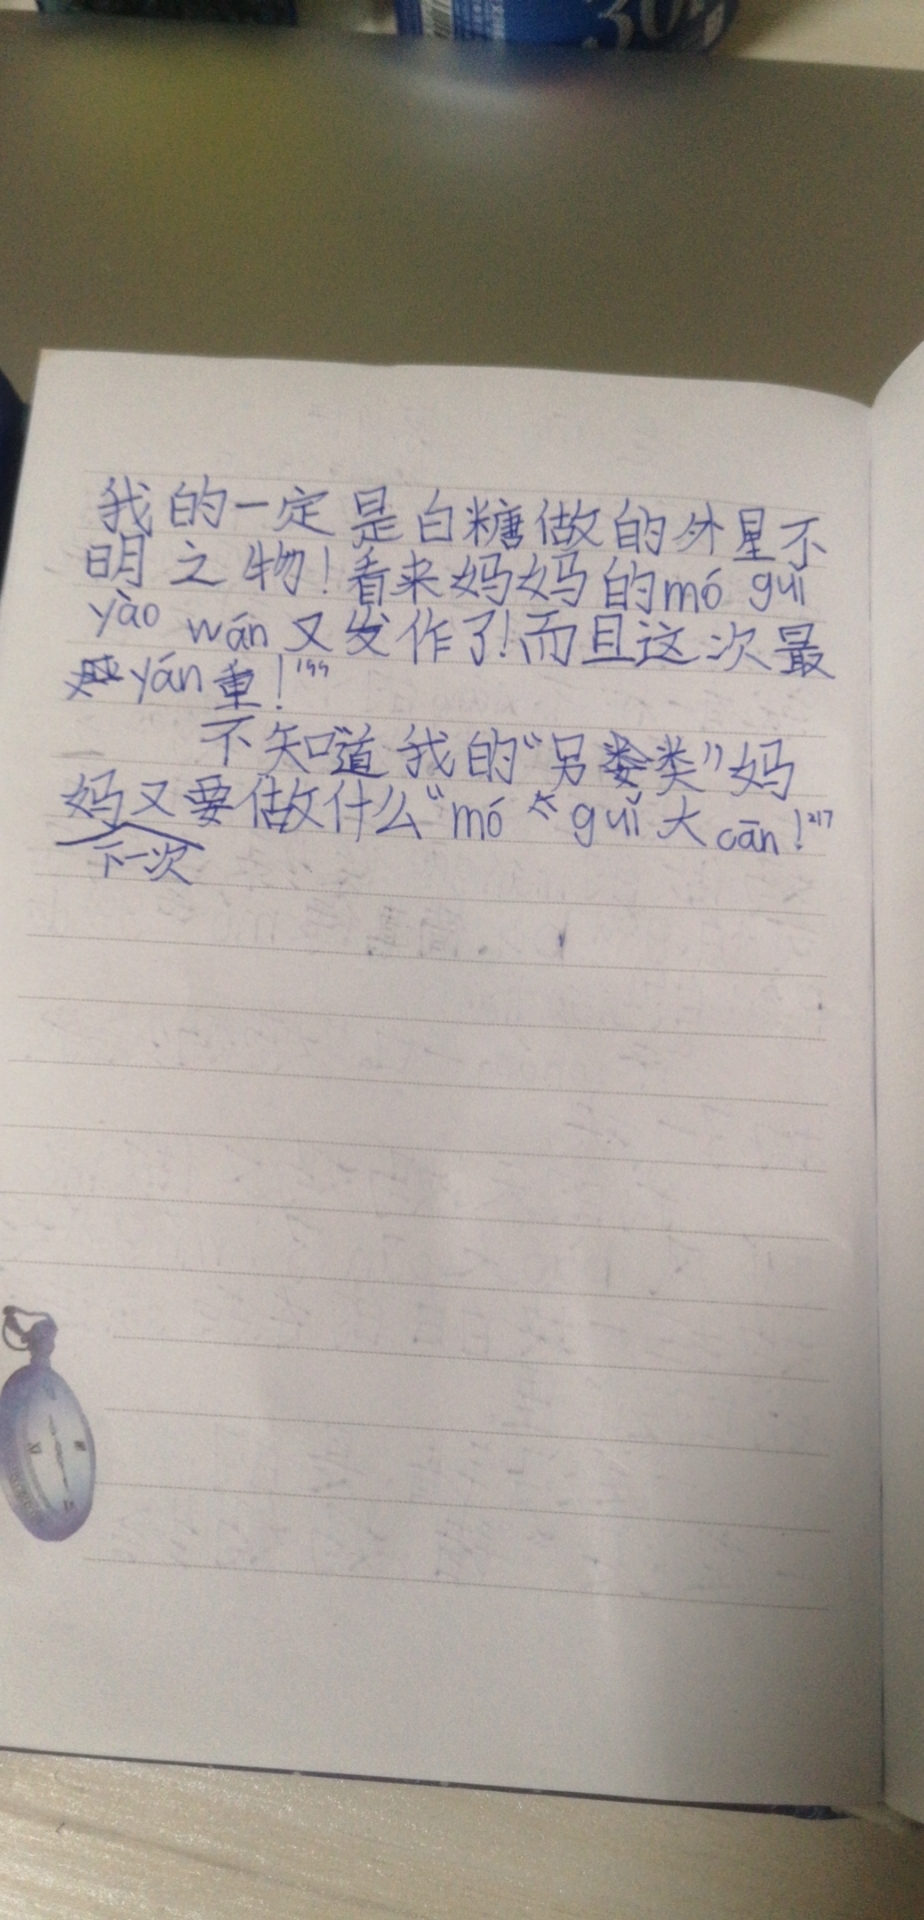 304
我的一定是白糖做的外星不
明之物!看来妈妈的mó guǐ
yào wán又发作了!而且这次最
yán重!”199
不知道我的“另类”妈
妈又要做什么“mó guǐ大cān!”217
下一次